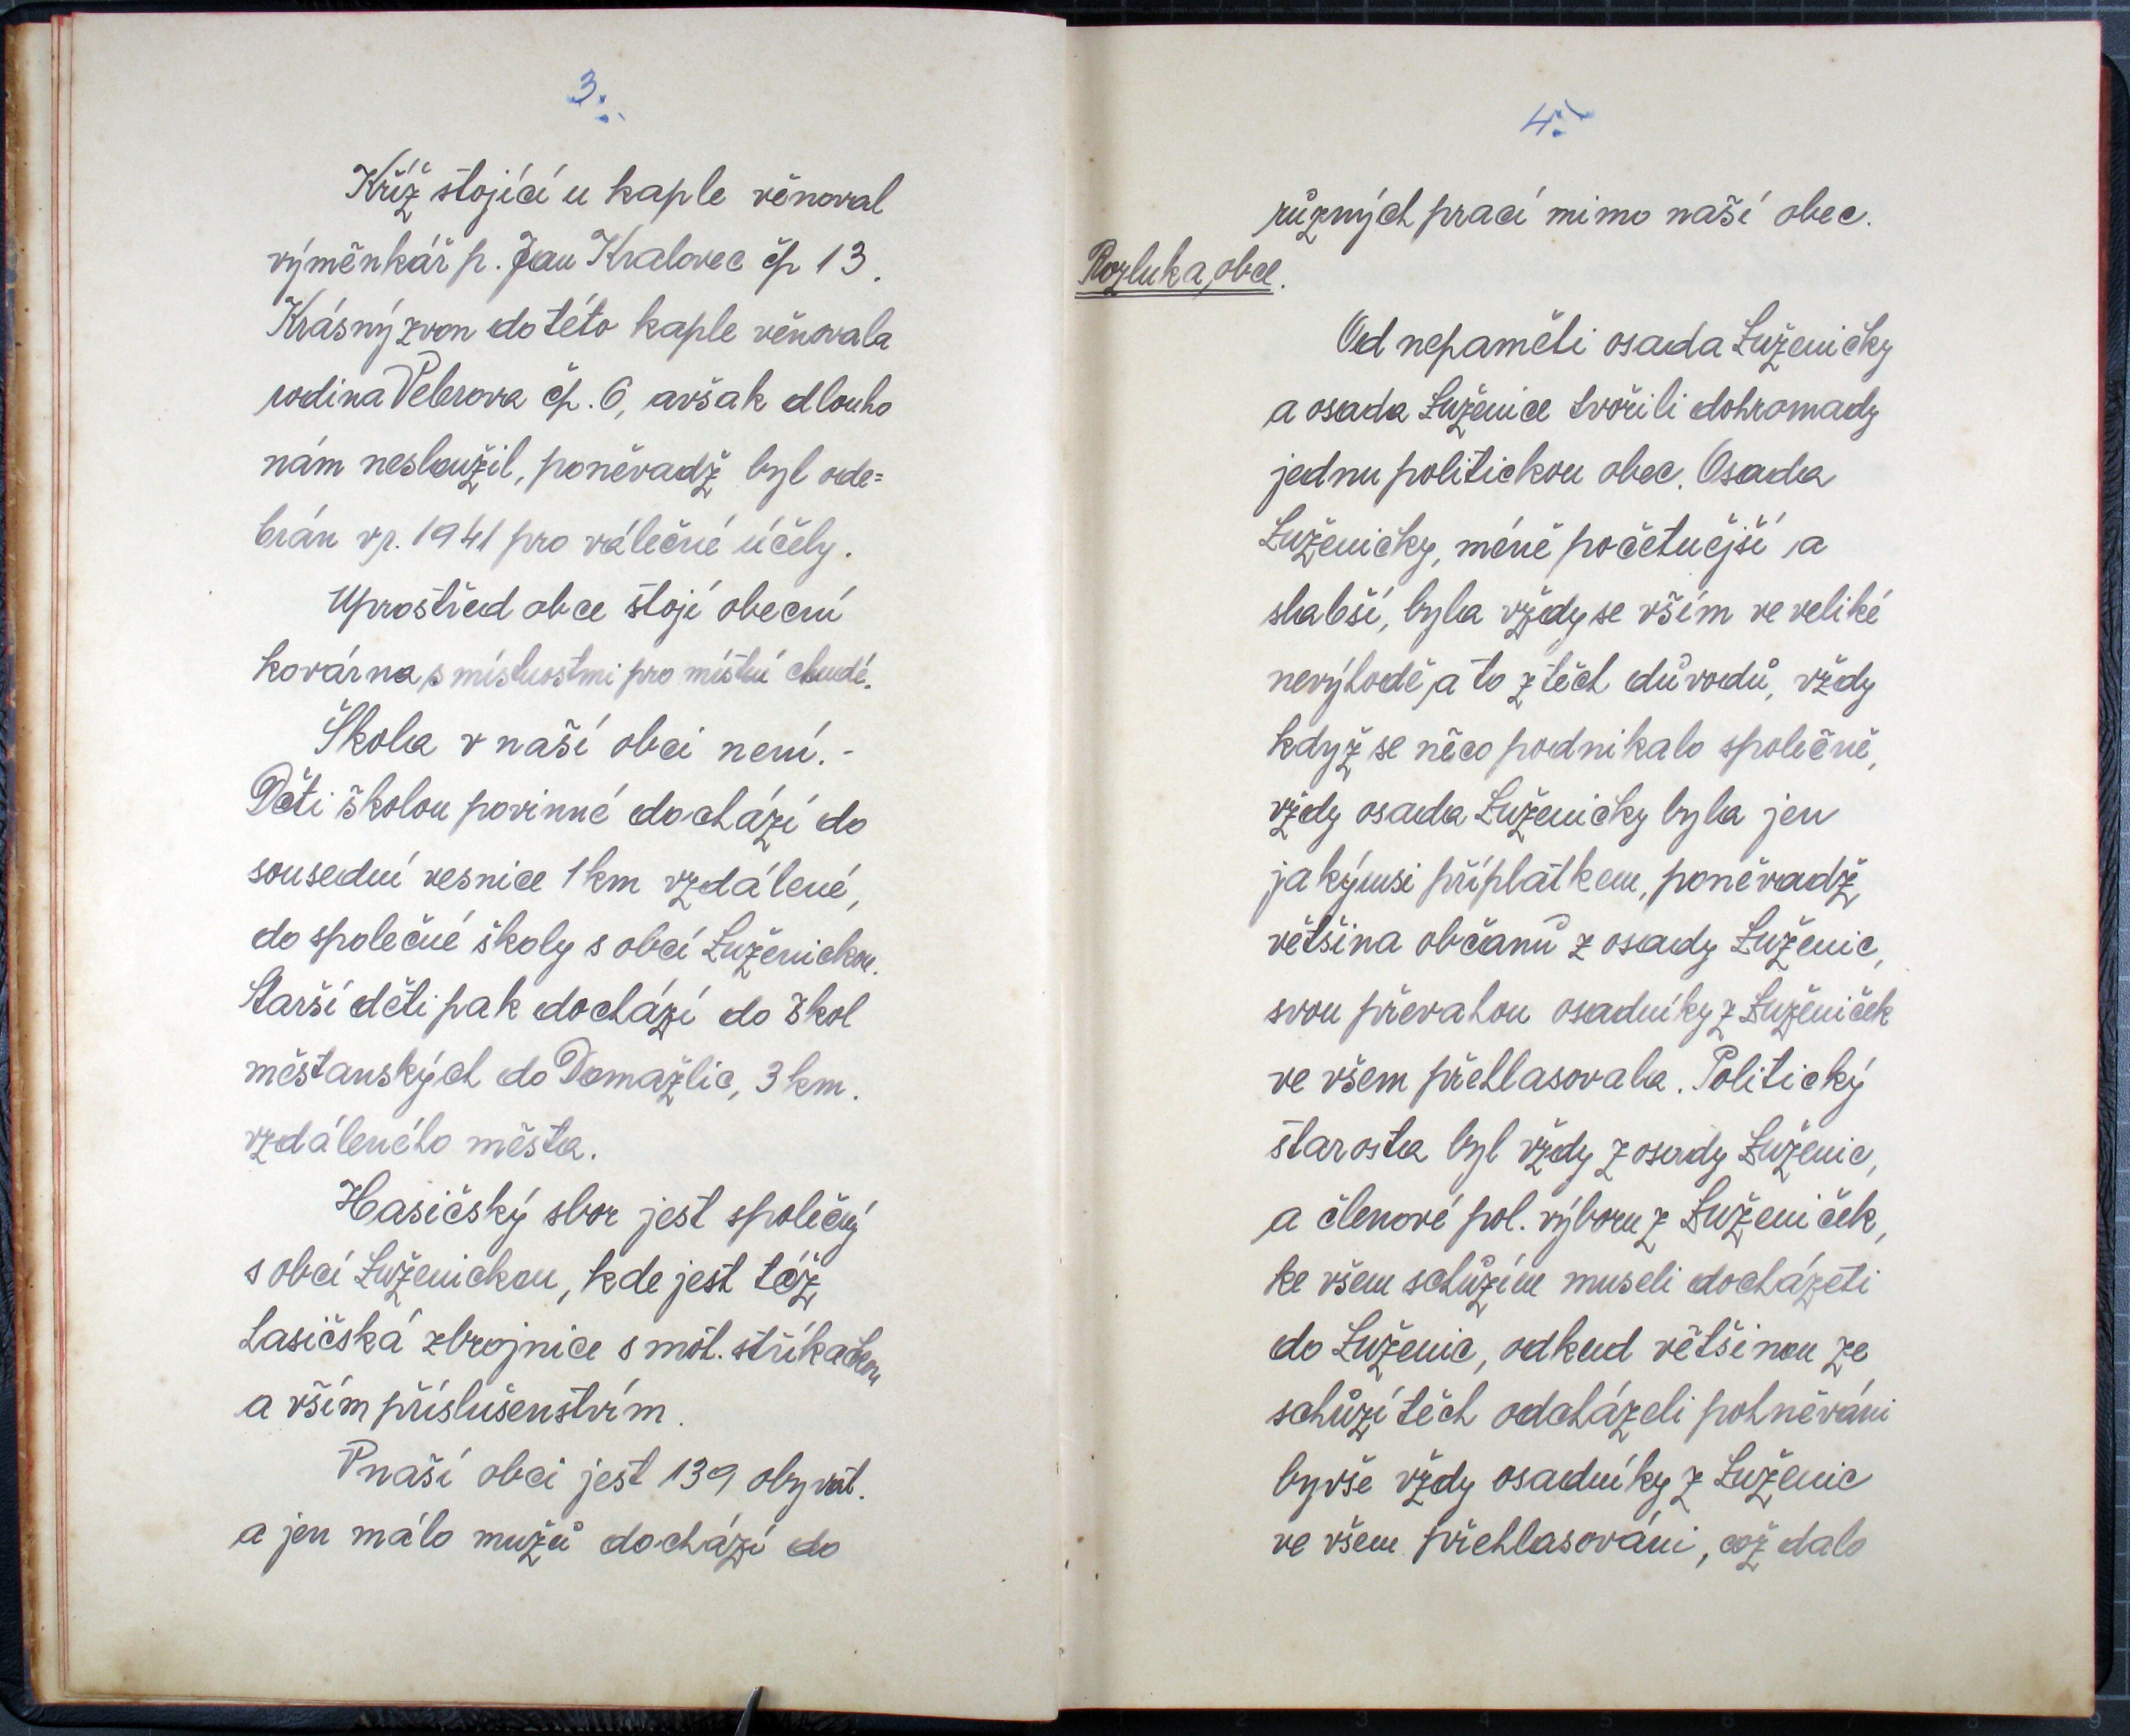 3.
Kříž stojící u kaple věnoval
výměnkář p. Jan Kralovec čp 13.
Krásný zvon do této kaple věnovala
rodina Veberova čp. 6, avšak dlouho
nám nesloužil, poněvadž byl ode=
brán v r. 1941 pro válečné účely.
Uprostřed obce stojí obecní
kovárna s místnostmi pro místní chudé.
Škola v naší obci není. -
Děti školou povinné dochází do
sousední vesnice 1 km vzdálené,
do společné školy s obcí Luženickou.
Starší děti pak dochází do škol
měšťanských do Domažlic, 3 km.
vzdáleného města.
Hasičský sbor jest společný
s obcí Luženickou, kde jest též
hasičská zbrojnice s mot. stříkačkou
a vším příslušenstvím.
V naší obci jest 139 obyvat.
a jen málo mužů dochází do
4.
různých prací mimo naší obec.
Rozluka obce.
Od nepaměti osada Luženičky
a osada Luženice tvořili dohromady
jednu politickou obec. Osada
Luženičky, méně početnější a
slabší, byla vždy se vším ve veliké
nevýhodě a to z těch důvodů, vždy
když se něco podnikalo společně,
vždy osada Luženičky byla jen
jakýmsi příplatkem, poněvadž
většina občanů z osady Luženic,
svou převahou osadníky z Luženiček
ve všem přehlasovala. Politický
starosta byl vždy z osady Luženic,
a členové pol. výboru z Luženiček,
ke všem schůzím museli docházeti
do Luženic, odkud většinou ze
schůzí těch odcházeli pohněváni
byvše vždy osadníky z Luženic
ve všem přehlasováni, což dalo